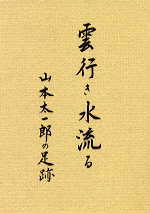 雲行き水流る
山本太一郎の足跡